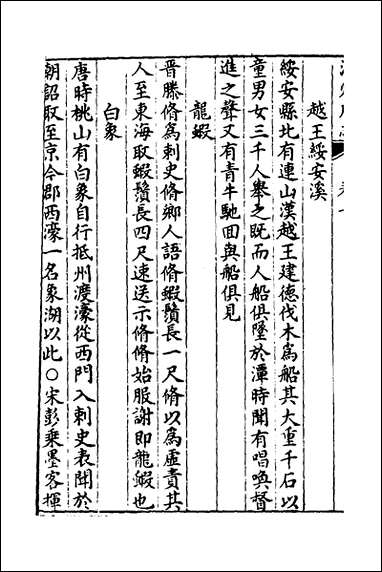 越王綏安溪
綏安縣北有連山漢越王建德伐木為船其大重千石以
童男女三千人舉之既而人船俱墜於潭時聞有唱喚督
進之聲又有青牛馳回與船俱見
龍蝦
晉滕脩為刺史脩鄉人語脩蝦鬚長一尺脩以為虛責其
人至東海取蝦鬚長四尺速送示脩脩始服謝即龍蝦也
白象
唐時桃山有白象自行抵州渡濠從西門入刺史表聞於
朝詔取至京今郡西濠一名象湖以此○宋彭乘墨客揮